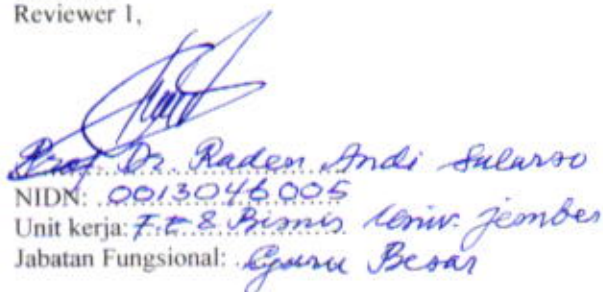 Reviewer 1,
Prof. Dr. Raden Andi Sularso
NIDN: 0013046005
Unit kerja: F.E & Bisnis Univ. Jember
Jabatan Fungsional: Guru Besar